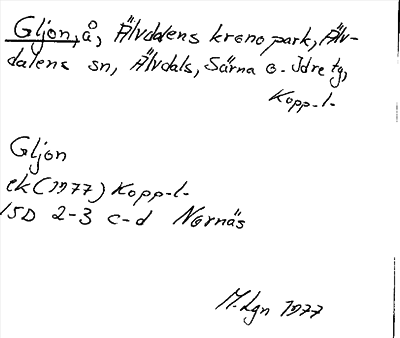 Gljon, å, Älvdalens kronopark, Älv-
dalens sn, Älvdals, Särna o. Idre tg,
Kopp. l.
Gljon
ek (1977) Kopp. l.
15D 2-3 c-d Nornäs
M. Lgn 1977